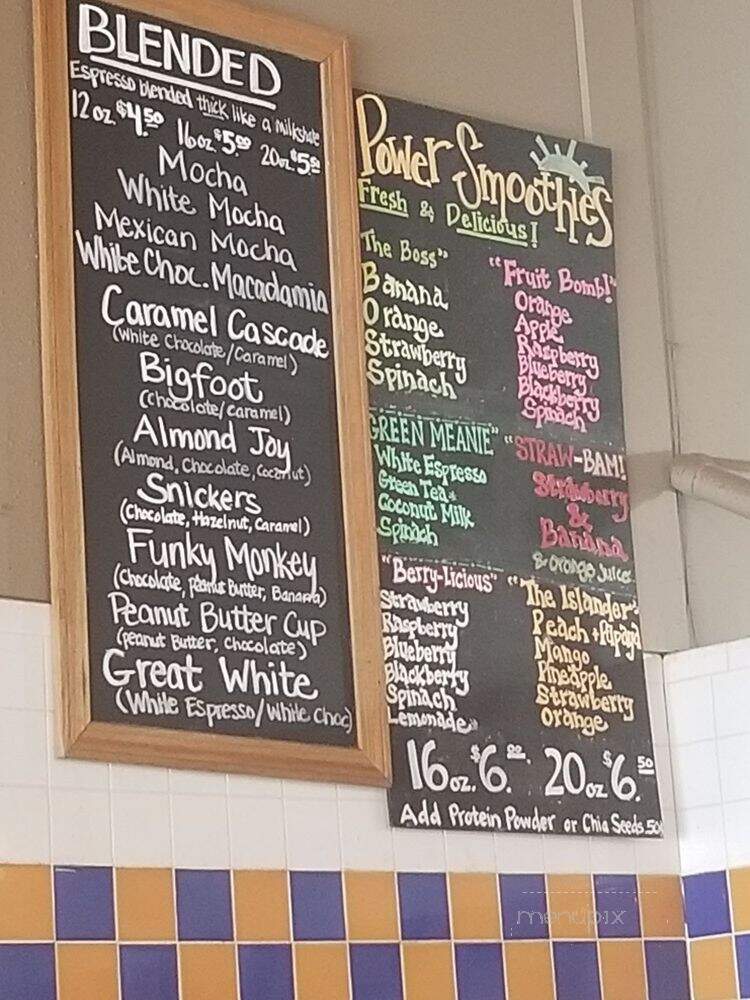 BLENDED
Espresso blended thick like a milkshake
12oz. $4.50 16oz $5.00 20oz. $5.50
Mocha
White Mocha
Mexican Mocha
White Choc. Macadamia
Caramel Cascade
(White Chocolate/Caramel)
Bigfoot
(Chocolate/Caramel)
Almond Joy
(Almond, Chocolate, Coconut)
Snickers
(Chocolate, Hazelnut, Caramel)
Funky Monkey
(Chocolate, Peanut Butter, Banana)
Peanut Butter Cup
(peanut Butter, Chocolate)
Great White
(White Espresso/White Choc)
Power Smoothies
Fresh & Delicious!
The Boss"
Banana
Orange
Strawberry
Spinach
"Fruit Bomb!"
Orange
Apple
Raspberry
Blueberry
Blackberry
Spinach
GREEN MEANIE"
White Espresso
Green Tea
Coconut Milk
Spinach
"STRAW-BAM!
Strawberry
&
Banana
& Orange Juice
"Berry-Licious"
Strawberry
Raspberry
Blueberry
Blackberry
Spinach
Lemonade
"The Islander"
Peach + Papaya
Mango
Pineapple
Strawberry
Orange
16oz. $6.00 20oz $6.50
Add Protein Powder or Chia Seeds .50
menupix